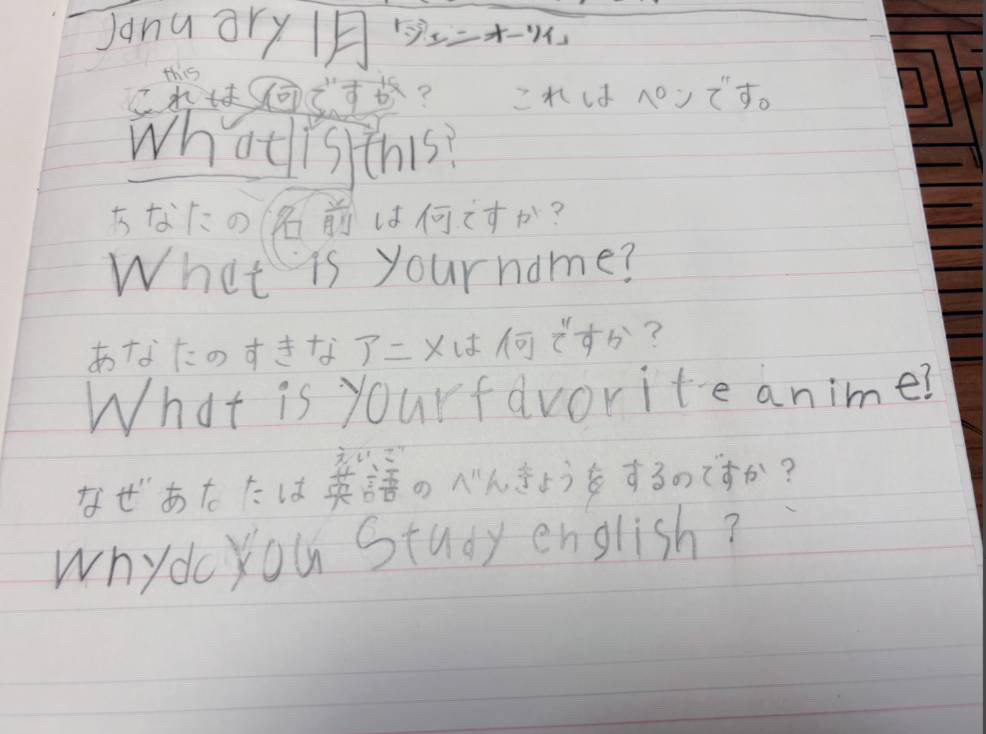 January 1月 「ジェニオーリィ」
this is
これは何ですか? これはペンです。
What is this?
あなたの名前は何ですか?
What is your name?
あなたのすきなアニメは何ですか?
What is your favorite anime?
えいご
なぜあなたは英語のべんきょうをするのですか?
Why do you Study english?